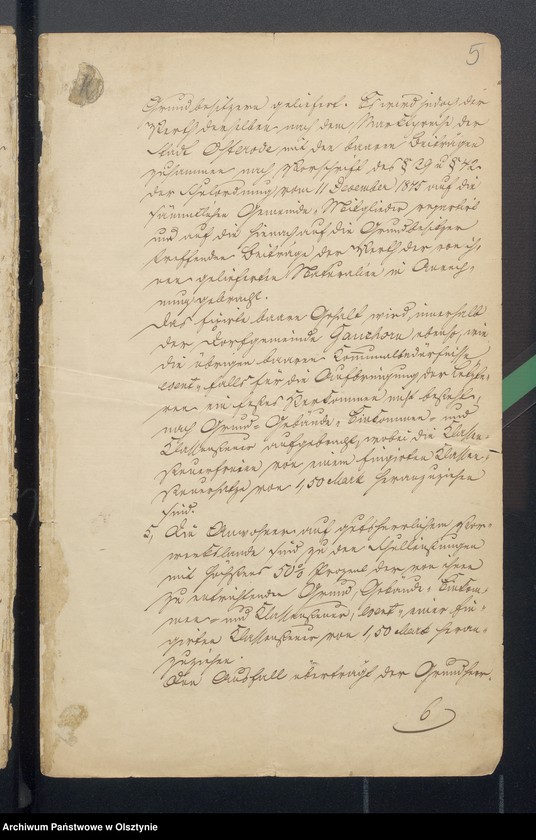 5
Grundbesitzern geliefert. Es wird jedoch der
Werth derselben nach dem Marktpreise der
Stadt Osterode mit den baaren Beiträgen
zusammen nach Vorschrift des § 29 u § 42
der Schulordnung vom 11 Dezember 1845 auf die
sämmtlichen Gemeinde-Mitglieder repartirt
und auf die hienach auf die Grundbesitzer
treffenden Beiträge der Werth der von ih-
nen gelieferten Naturalien in Anrech-
nung gebracht.
Das fixirte baare Gehalt wird innerhalb
der Dorfgemeinde Ganshorn ebenso, wie
die übrigen baaren Kommunalbedürfnisse,
event. falls für die Aufbringung der letzte-
ren ein festes Herkommen nicht besteht,
nach Grund- Gebäude- Einkommen- und
Klassensteuer aufgebracht, wobei die Klassen-
steuerfreien von einem fingirten Klassen-
steuersatze von 1,50 Mark heranzuziehen
sind.
5, Die Anwohner auf gutsherrlichem Vor-
werkslande sind zu den Schulleistungen
mit höchstens 50% Prozent der von ihnen
zu entrichtenden Grund, Gebäude- Einkom-
men- und Klassensteuer, event. einer fin-
girten Klassensteuer von 1,50 Mark heran-
zuziehen.
Den Ausfall überträgt der Grundherr.
6
Archiwum Państwowe w Olsztynie